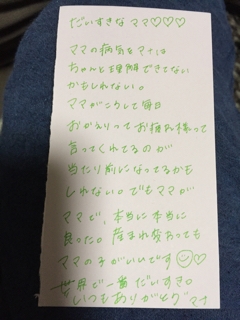 だいすきな ママ♡♡♡
ママの病気をマナは
ちゃんと理解できてない
かもしれない。
ママがこうして毎日
おかえりってお疲れ様って
言ってくれてるのが
当たり前になってるかも
しれない。でもママが
ママで、本当に本当に
良った。産まれ変わっても
ママの子がいいです☺♡
世界で一番だいすき。
いつもありがとう マナ